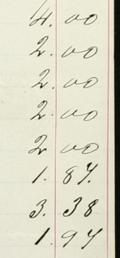 4.00
2.00
2.00
2.00
2.00
1.87
3.38
1.94